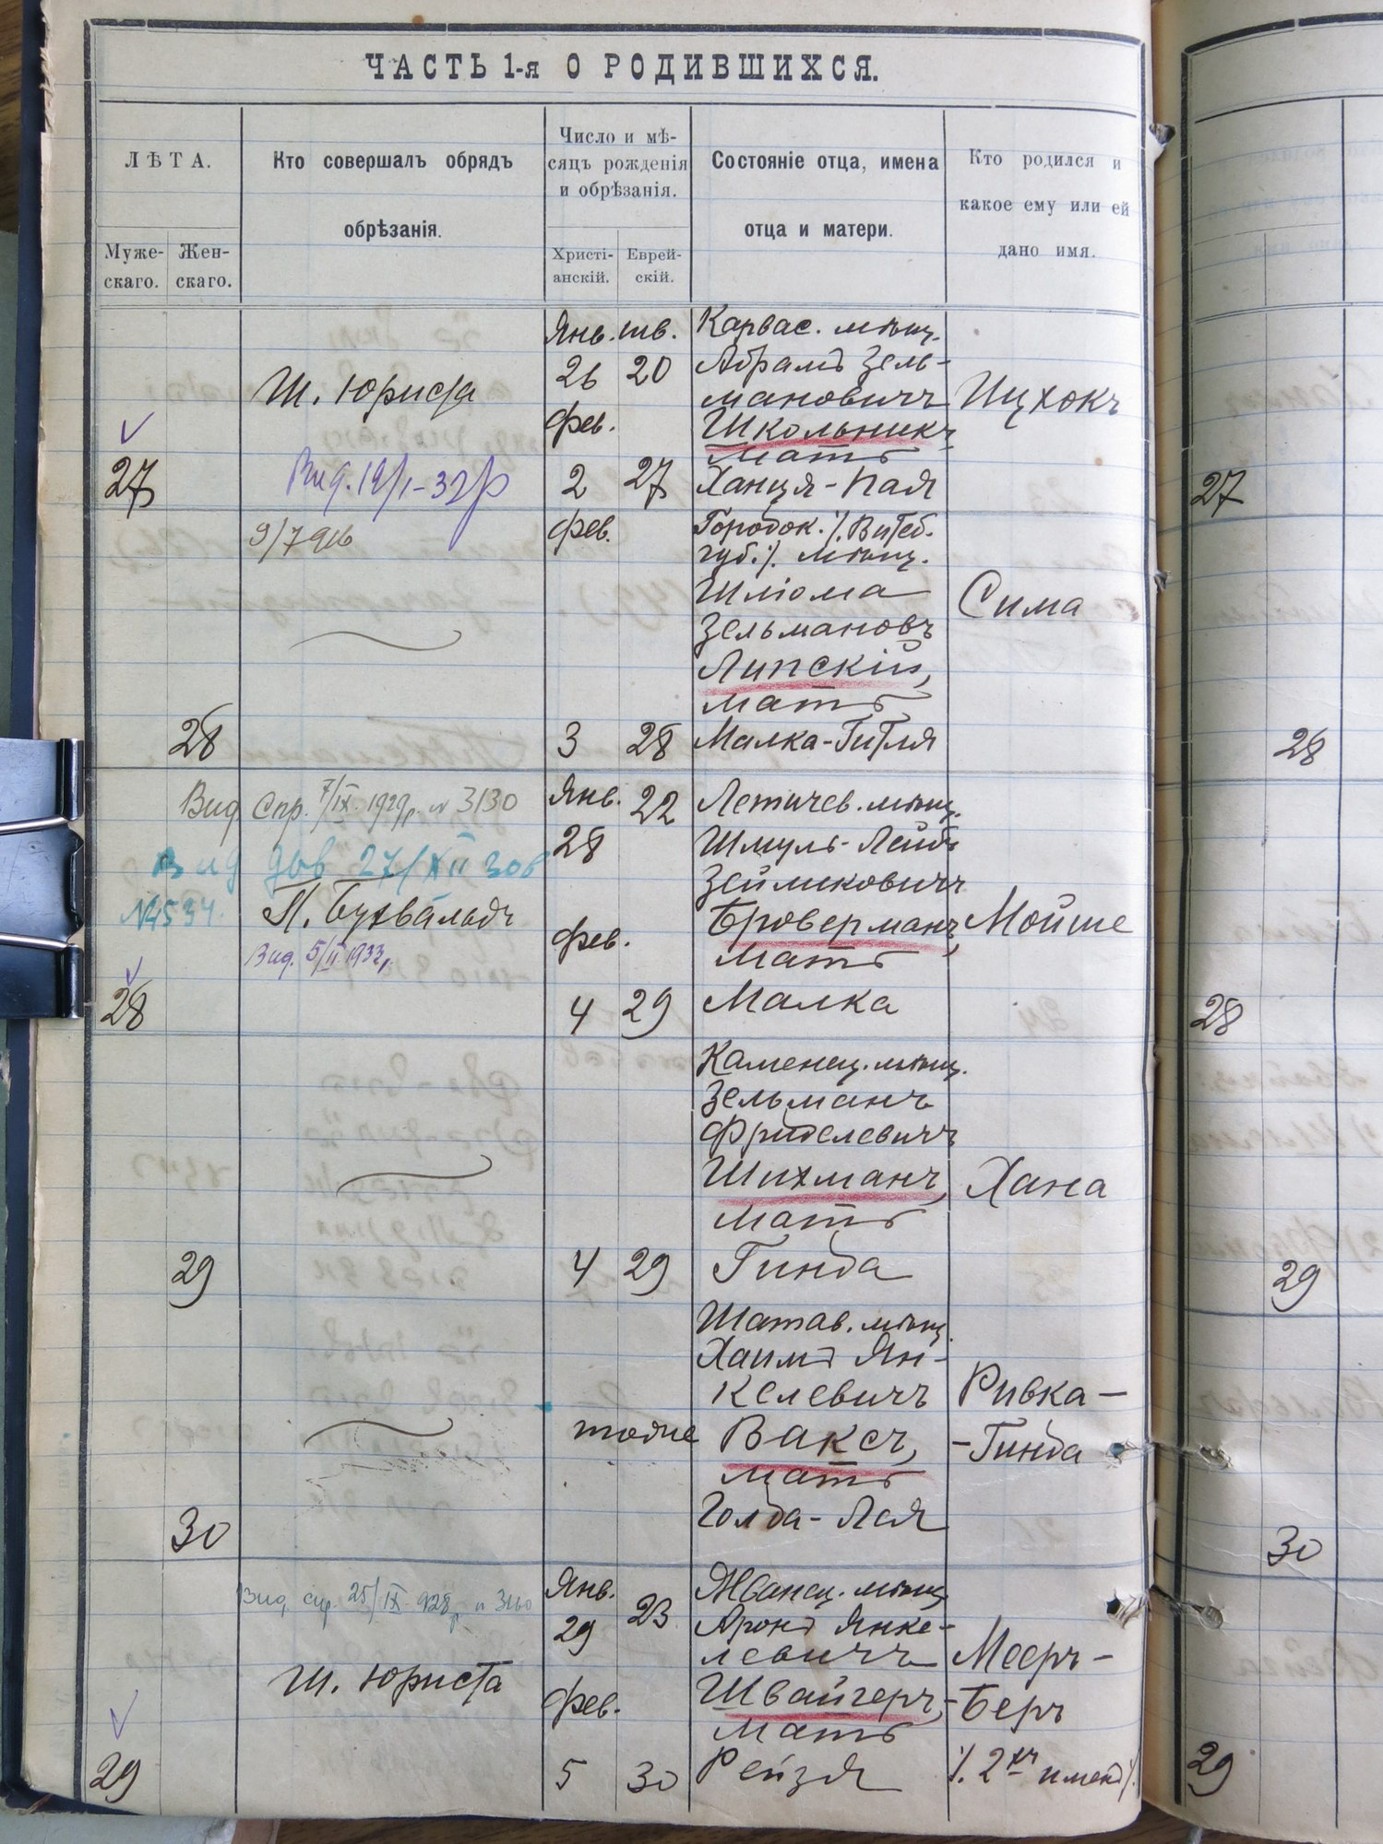 ЧАСТЬ 1-я О РОДИВШИХСЯ.
ЛѢТА.
Муже-
скаго.
Жен-
скаго.
Кто совершалъ обрядъ
обрѣзанія.
Число и мѣ-
сяцъ рожденія
и обрѣзанія.
Христі-
анскій.
Еврей-
скій.
Состояніе отца, имена
отца и матери.
Кто родился и
какое ему или ей
дано имя.
27
Ш. Юриста
Вид. 19/I-32 р
Янв. шв.
26 20
фев.
2 27
Карвас. мѣщ.
Абрамъ Зель-
мановичъ
Школьникъ
мать
Ханця-Пая
Ицхокъ
27
28
фев.
3 28
Городок. /. Витеб.
губ. /. мѣщ.
Шліома
Зельмановъ
Липскій,
мать
Малка-Гитля
Сима
28
Вид Спр. 7/IX 1929р. № 3130
Вид дов 27/XII 30в
№4534
П. Бухвальдъ
Вид. 5/II 1933р.
28
Янв. 22
28
фев.
4 29
Летичев. мѣщ.
Шмуль-Лейбъ
Зейликовичъ
Броверманъ,
мать
Малка
Мойше
28
29
4 29
Каменец. мѣщ.
Зельманъ
Фриделевичъ
Шихманъ,
мать
Гинда
Хана
29
30
тоже
Шатав. мѣщ.
Хаимъ Ян-
келевичъ
Ваксъ,
мать
Голда-Лея
Ривка-
-Гинда
30
Вид. спр. 25/IX 928р. № 3160
Ш. Юриста
29
Янв.
29 23
фев.
5 30
Жванец. мѣщ.
Аронъ Янке-
левичъ
Швайгеръ,
мать
Рейзя
Мееръ-
-Беръ
/. 2хъ именъ /.
29